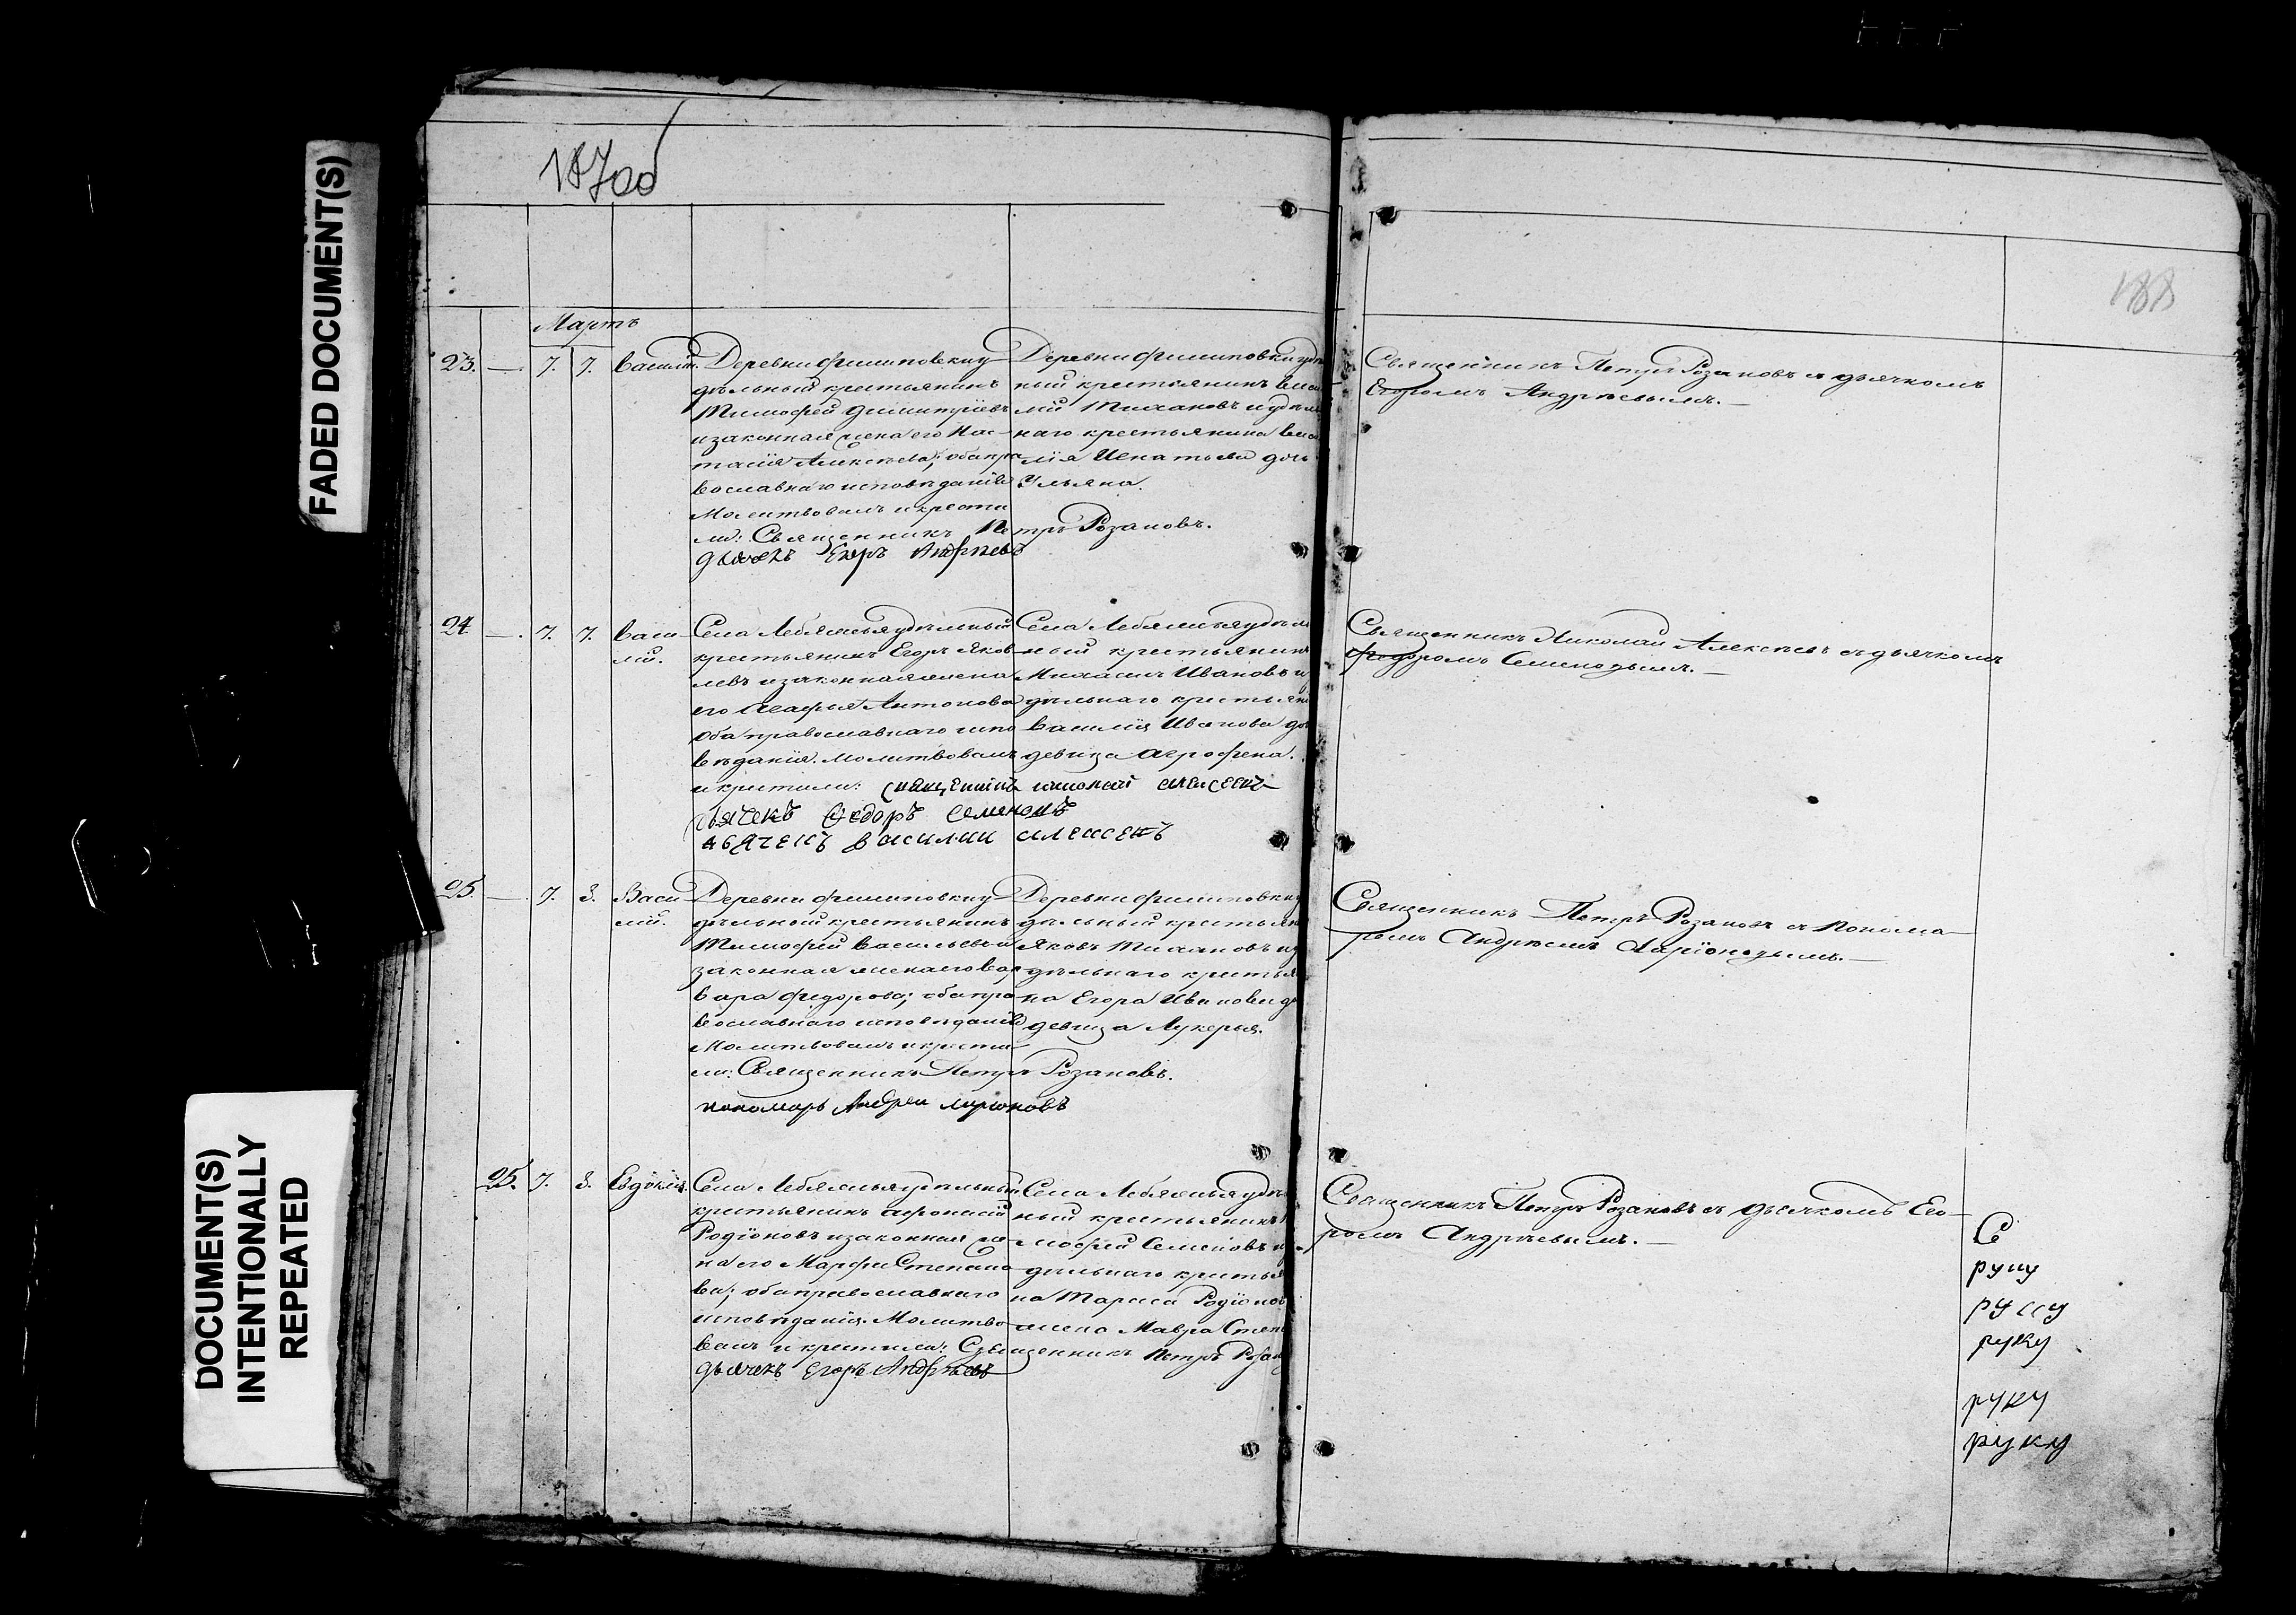 FADED DOCUMENT(S)
DOCUMENT(S)
INTENTIONALLY
REPEATED
188
Мартъ
23. — 7. 7. Василій.
Деревни Филиповки у
дѣльный крестьянинъ
Тимофей Димитріевъ
и законная жена его Нас
тасія Алексѣева; оба пра
вославнаго исповѣданія
Молитвовалъ и крести
ли: Священникъ Петръ Розановъ.
дьячекъ Егоръ Андрѣевъ
Деревни Филиповки удѣль
ный крестьянинъ Васи
лій Тихановъ и удѣль
наго крестьянина Васи
лія Игнатьева дочь
Ульяна.
Священникъ Петръ Розановъ съ дьячкомъ
Егоромъ Андрѣевымъ. —
24 — 7. 7. Васи
лій.
Села Лебяжья удѣльный
крестьянинъ Егоръ Яков
левъ и законная жена
его Агафья Антонова
оба православнаго испо
вѣданія. Молитвовалъ
и крестили: священникъ николай алексеевъ
дьячекъ Федоръ Семеновъ
дьячекъ василий алексеевъ
Села Лебяжья удѣль
ный крестьянинъ
Михаилъ Ивановъ и у
дѣльнаго крестьяни
Василія Иванова до
девица Агрофена.
Священникъ Николай Алексѣевъ съ дьячкомъ
Федоромъ Семеновымъ. —
25. — 7. 8. Васи
лій.
Деревни Филиповки у
дѣльной крестьянинъ
Тимофей Васильевъ и
законная жена его Вар
вара Федорова; оба пра
вославнаго исповѣданія
Молитвовалъ и крести
ли: Священникъ Петръ Розановъ.
пономарь Андрей Ларионовъ
Деревни Филиповки у
дѣльный крестьян
Яковъ Тихановъ и у
дѣльнаго крестья
на Егора Иванова до
девица Лукерья.
Священникъ Петръ Розановъ съ понома
ремъ Андрѣемъ Ларіоновымъ. —
25. 7. 8. Евдокія.
Села Лебяжья удѣльный
крестьянинъ Афонасій
Родіоновъ и законная же
на его Марфа Степано
ва; оба православнаго
исповѣданія. Молитво
валъ и крестили: Священникъ Петръ Розан
дьячекъ Егоръ Андрѣевъ
Села Лебяжья удѣль
ный крестьянинъ
мофей Семеновъ и у
дѣльнаго крестья
на Тараса Родіонов
жена Мавра Степ
Священникъ Петръ Розановъ съ дьячкомъ Его
ромъ Андрѣевымъ. —
Се
руку
руку
руку
руку
руку